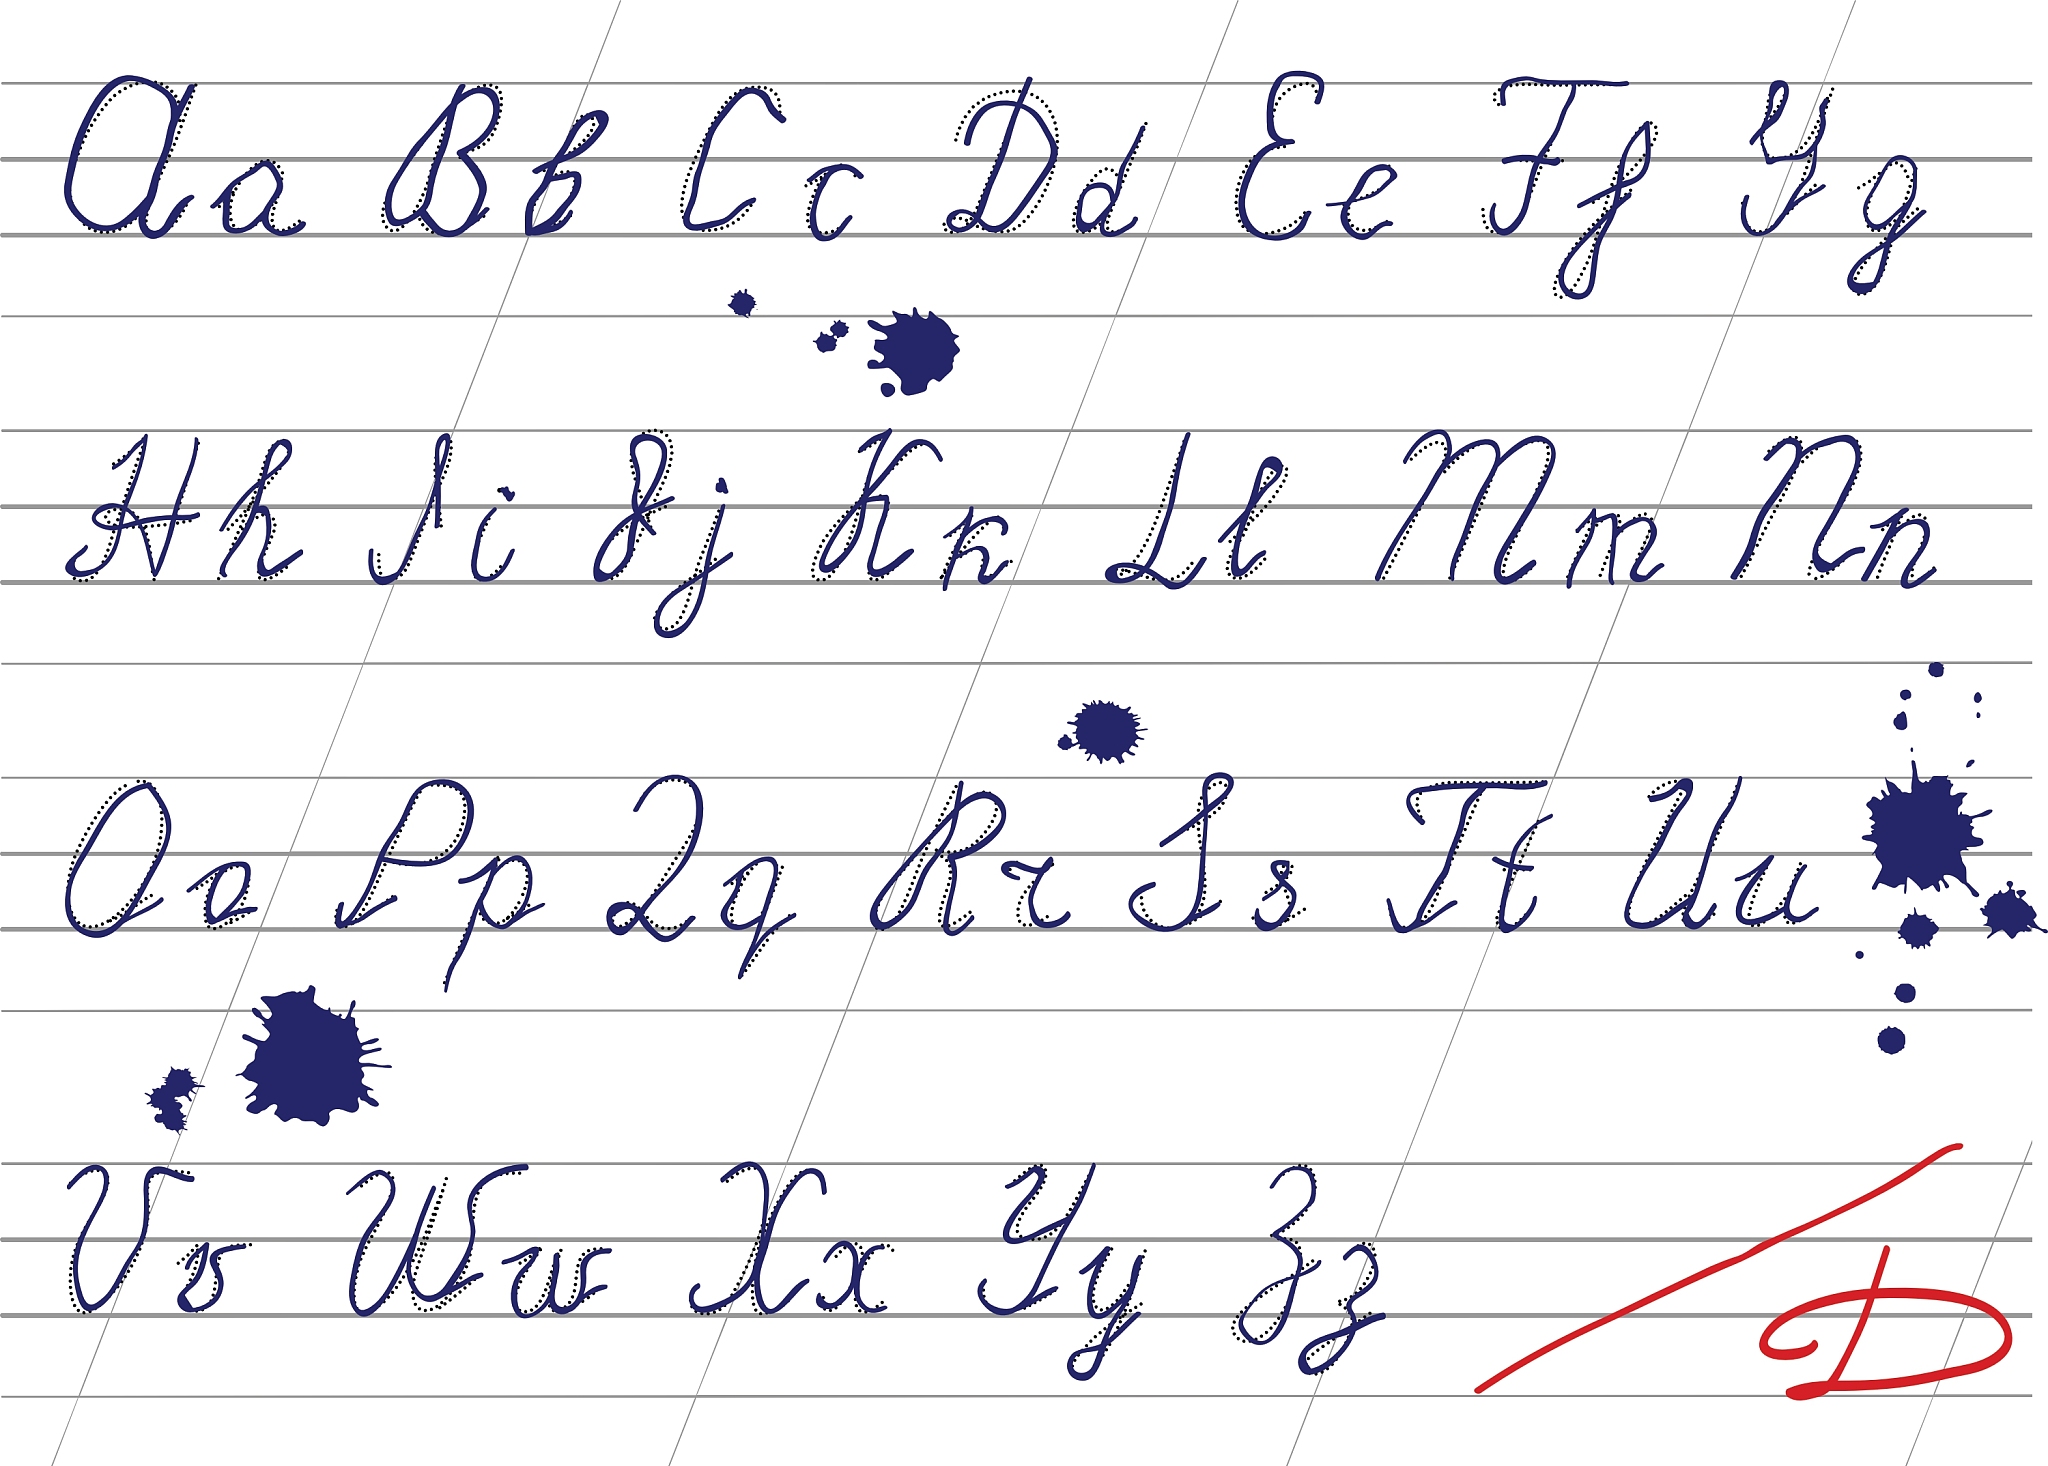 Aa Bb Cc Dd Ee Ff Gg
Hh Ii Jj Kk Ll Mm Nn
Oo Pp Qq Rr Ss Tt Uu
Vv Ww Xx Yy Zz D